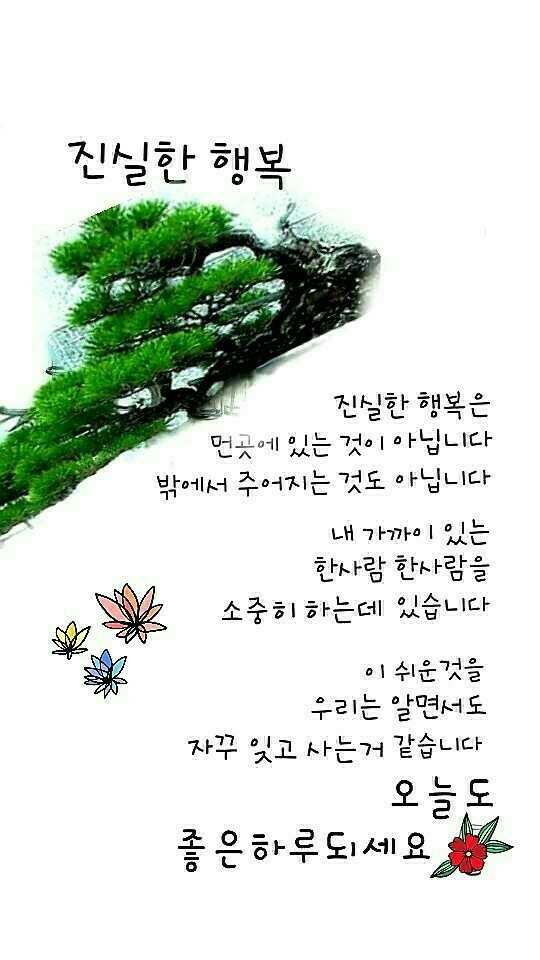 진실한 행복
진실한 행복은
먼곳에 있는 것이 아닙니다
밖에서 주어지는 것도 아닙니다
내 가까이 있는
한사람 한사람을
소중히 하는데 있습니다
이 쉬운것을
우리는 알면서도
자꾸 잊고 사는거 같습니다
오늘도
좋은하루되세요